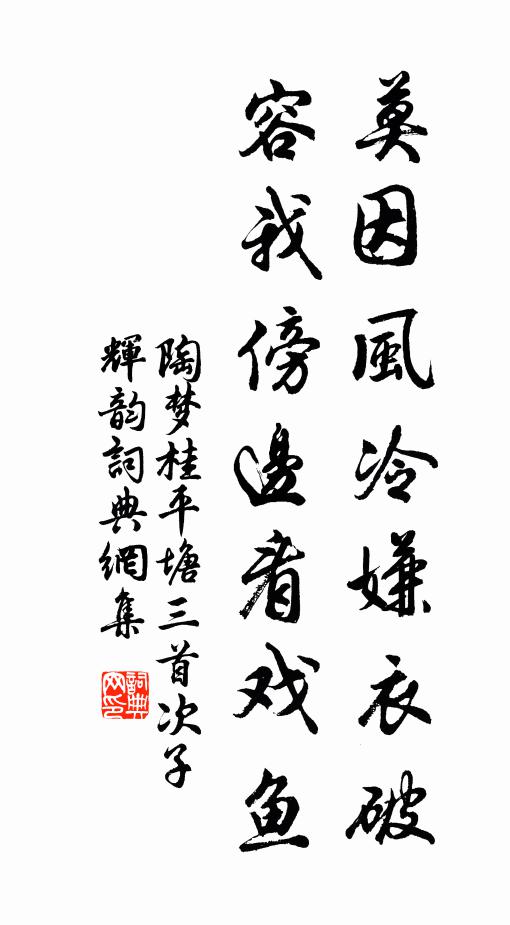 莫因風冷嫌衣破
容我傍邊看戏魚
陶梦桂平塘三首次子
輝韵詞典網集
詞典网印